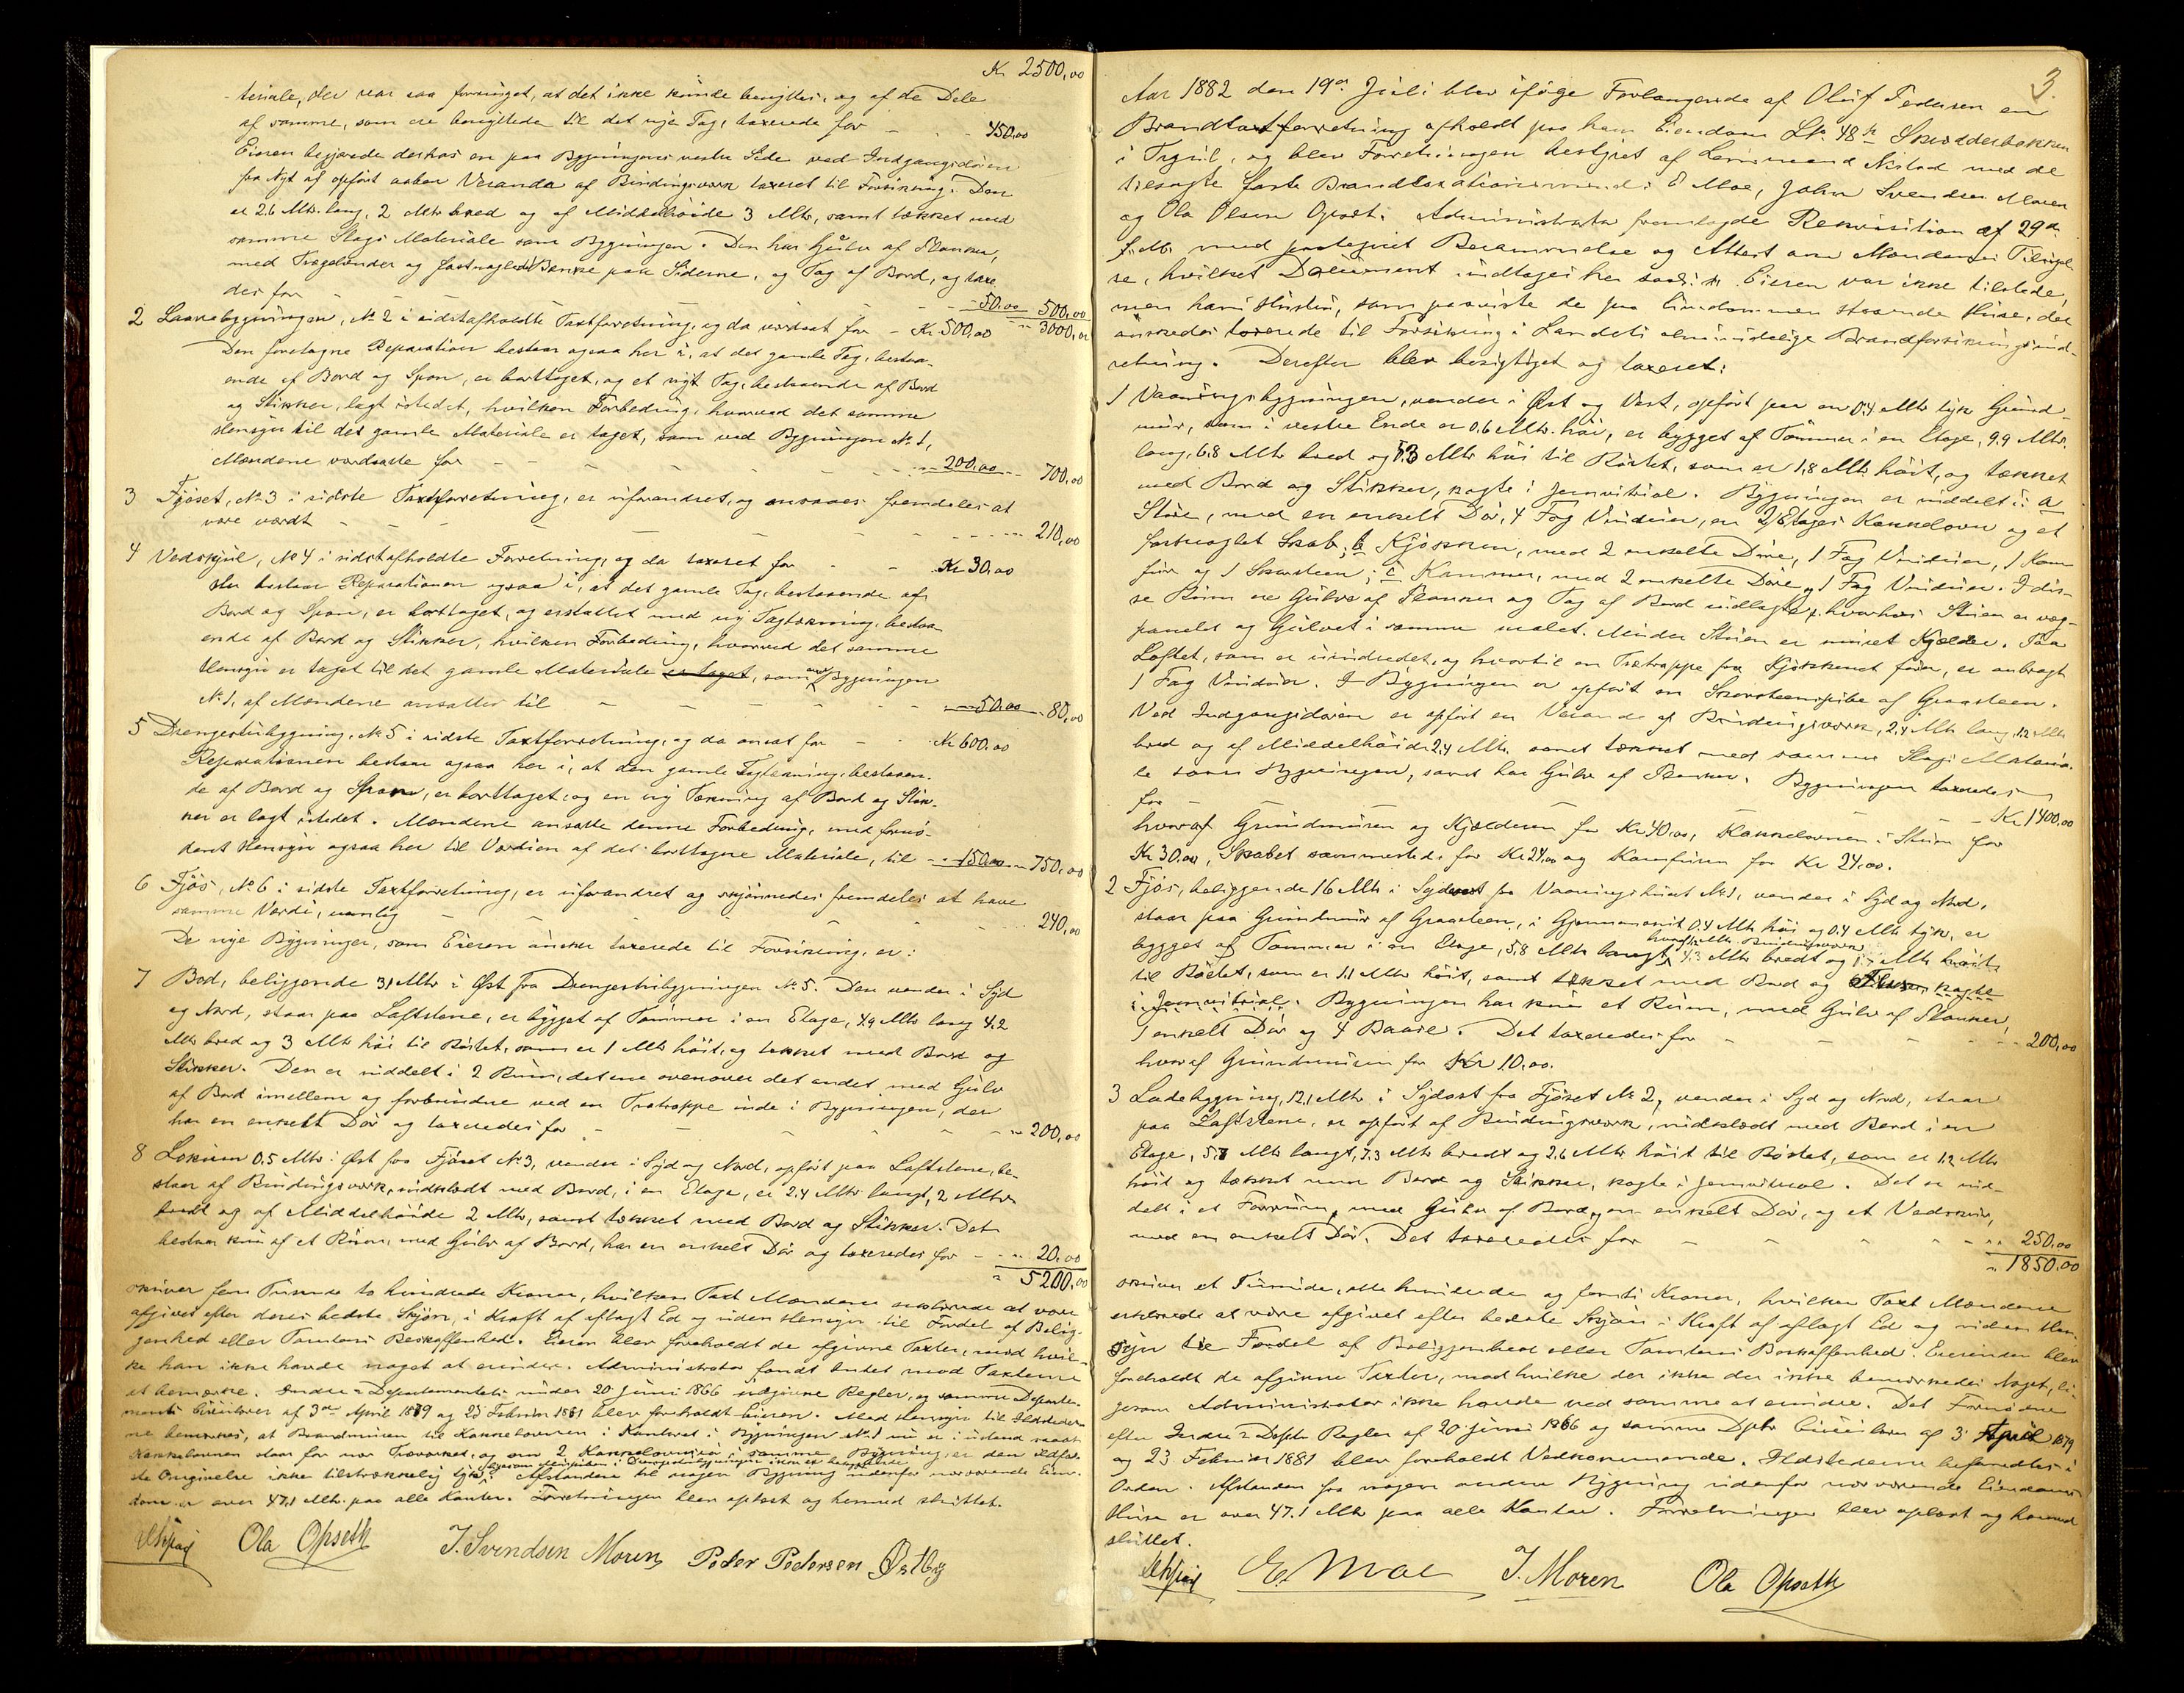 Kr 2500,00
teriale, der var saa forringet, at det ikke kunde benyttes, og af de Dele
af samme, som ere benyttede til det nye Tag, taxerede for - - - 450,00
Eieren begjærede derhos en paa Bygningens vestre Side ved Indgangsdøren
fra Nyt af opført aaben Veranda af Bindingsværk taxeret til Forsikring. Den
er 2.6 Mtr. lang, 2 Mtr bred og af Middelhøide 3 Mtr, samt tækket med
samme Slags Materiale som Bygningen. Den har Gulv af Planker,
med Trægelænder og fastnaglede Bænke paa Siderne, og Tag af Bord, og taxe
des for - - - 50,00 500,00
2 Laanebygningen, No 2 i sidstafholdte Taxtforretning, og da værdsat for - Kr. 500,00 " 3000,00
Den foretagne Reparation bestaar ogsaa her i, at det gamle Tag, bestaa-
ende af Bord og Spon, er borttaget, og et nyt Tag, bestaaende af Bord
og Stikker, lagt istedet, hvilken Forbedring, hvorved det samme
Hensyn til det gamle Materiale er taget, som ved Bygningen No 1,
Mændene værdsatte for - - - 200,00 - - 700,00
3 Fjøset, No 3 i sidste Taxtforretning, er uforandret, og ansaaes fremdeles at
være værdt - - - 210,00
4 Vedskjul, No 4 i sidstafholdte Forretning, og da taxeret for - - Kr 30,00
Her bestaar Reparationen ogsaa i, at det gamle Tag, bestaaende af
Bord og Spon, er borttaget, og erstattet med ny Tagtækning, bestaa
ende af Bord og Stikker, hvilken Forbedring, hvorved det samme
Hensyn er taget til det gamle Materiale er taget, som ved Bygningen
No 1, af Mændene ansattes til - - - 50,00 - 80,00
5 Drengestubygning, No 5 i sidste Taxtforretning, og da ansat for - - Kr 600,00
Reparationen bestaar ogsaa her i, at den gamle Tagtækning, bestaaen-
de af Bord og Spon, er borttaget, og en ny Tækning af Bord og Stik-
ker er lagt istedet. Mændene ansatte denne Forbedring, med fornø-
dent Hensyn ogsaa her til Værdien af det borttagne Materiale, til - - 150,00 - 750,00
6 Fjøs, No 6 i sidste Taxtforretning, er uforandret og skjønnedes fremdeles at have
samme Værdi, nemlig - - - 240,00
De nye Bygninger, som Eieren ønsker taxerede til Forsikring, er:
7 Bod, beliggende 31 Mtr i Øst fra Drengestubygningen No 5. Den vender i Syd
og Nord, staar paa Laftstene, er bygget af Tømmer i en Etage, 4.9 Mtr lang 4.2
Mtr bred og 3 Mtr høi til Røstet, som er 1 Mtr høit, og tækket med Bord og
Stikker. Den er inddelt i 2 Rum, det ene ovenover det andet med Gulv
af Bord imellem og forbundne ved en Trætrappe inde i Bygningen, der
har en enkelt Dør og taxeredes for - - - 200,00
8 Lokum 0.5 Mtr i Øst fra Fjøset No 3, vender i Syd og Nord, opført paa Laftstene, be-
staar af Bindingsværk, indklædt med Bord, i en Etage, er 2.4 Mtr langt, 2 Mtr
bredt og af Middelhøide 2 Mtr, samt tækket med Bord og Stikker. Det
bestaar kun af et Rum, med Gulv af Bord, har en enkelt Dør og taxeredes for - - " 20,00
" 5200,00
skriver fem Tusinde to hundrede Kroner, hvilken Taxt Mændene erklærede at være
afgivet efter deres bedste Skjøn, i Kraft af aflagt Ed og uden Hensyn til Fordel af Belig-
genhed eller Tomtens Beskaffenhed. Eieren blev foreholdt de afgivne Taxter, mod hvil-
ke han ikke havde noget at erindre. Administrator fandt Intet mod Taxterne
at bemærke. Indre=Departementets under 20 Juni 1866 udgivne Regler, og samme Departe-
ments Cirkulærer af 3die April 1879 og 23 Februar 1881 blev foreholdt Eieren. Med Hensyn til Ildstederne
ne bemærkes, at Brandmuren til Kakkelovnen i Kontoret i Bygningen No 1 nu er i istand
Kakkelovnen staar for nær Træværket, og om 2 Kakkelovnsrør i samme Bygning, er den ildfas-
te Omgivelse ikke tilstrækkelig tyk. Afstanden til nogen Bygning udenfor nærværende Eien-
dom er over 47.1 Mtr. paa alle Kanter. Forretningen blev oplæst og hermed sluttet.
Ola Opseth J. Svendsen Moren Peder Pedersen Østby
3.
Aar 1882 den 19de Juli blev ifølge Forlangende af Oluf Pedersen en
Brandtaxtforretning afholdt paa hans Eiendom Lb. 48 b Skrædderbakken
i Trysil, og blev Forretningen bestyret af Lensmand Nestad med de
tilsagte faste Brandtaxationsmænd: E Moe, John Svendsen Moren
og Ola Olsen Opset. Administrator fremlagde Rekvisition af 29de
f. M. med paategnet Berammelse og Attest om Mændenes Tilsigel
se, hvilket Document indtages her saal. Eieren var ikke tilstede,
men hans Hustru, som paaviste de paa Eiendommen staaende Huse, der
ønskedes taxerede til Forsikring i Landets almindelige Brandforsikringsind-
retning. Derefter blev besigtiget og taxeret:
1 Vaaningsbygningen, vender i Øst og Vest, opført paa en 0.4 Mtr tyk Grund
mur, som i vestre Ende er 0.6 Mtr. høi, er bygget af Tømmer i en Etage, 9.9 Mtr.
lang, 6.8 Mtr bred og 3 Mtr høi til Røstet, som er 1.8 Mtr. høit, og tækket
med Bord og Stikker, kogte i Jernvitriol. Bygningen er inddelt i: a
Stue, med en enkelt Dør, 4 Fag Vinduer, en 2/Etages Kakkelovn og et
fastnaglet Skab; b Kjøkken, med 2 enkelte Døre, 1 Fag Vinduer, 1 Kom
fur og 1 Skorsteen; c Kammer, med 2 enkelte Døre og 1 Fag Vinduer. I dis-
se Rum ere Gulve af Planker og Tag af Bord indlagte, hvorhos Stuen er væg-
panelet og Gulvet i samme malet. Under Stuen er muret Kjelder. Paa
Loftet, som er uindredet, og hvortil en Trætrappe fra Kjøkkenet fører, er anbragt
1 Fag Vinduer. I Bygningen er opført en Skorsteenspibe af Graasteen.
Ved Indgangsdøren er opført en Veranda af Bindingsværk, 2.4 Mtr lang, 1.2 Mtr
bred og af Middelhøide 2.4 Mtr. samt tækket med samme Slags Materia-
le som Bygningen, samt har Gulv af Planker. Bygningen taxeredes
for - - - Kr. 1400,00
hvoraf Grundmuren og Kjælderen for Kr 40.00, Kakkelovnen i Stuen for
Kr 30.00, Skabet sammesteds for Kr 24.00 og Komfuren for Kr 24.00.
2 Fjøs, beliggende 16 Mtr i Sydvest fra Vaaningshuset No 1, vender i Syd og Nord,
staar paa Grundmur af Graasteen, i Gjennemsnit 0.4 Mtr høi og 0.4 Mtr tyk, er
bygget af Tømmer i en Etage, 5.8 Mtr langt, 4.3 Mtr bredt og Mtr høit
til Røstet, som er 1.1 Mtr høit, samt tækket med Bord og kogte
i Jernvitriol. Bygningen har kun et Rum, med Gulv af Planker,
1 enkelt Dør og 4 Baase. Det taxeredes for - - - 200,00
hvoraf Grundmuren for Kr 10.00.
3 Ladebygning, 12.1 Mtr i Sydost fra Fjøset No 2, vender i Syd og Nord, staar
paa Laftstene, er opført af Bindingsværk, indklædt med Bord i en
Etage, 5.7 Mtr langt, 7.3 Mtr bredt og 2.6 Mtr høit til Røstet, som er 1.2 Mtr
høit og tækket med Bord og Stikker, kogte i Jernvitriol. Det er ind-
delt i et Forrum, med Gulv af Bord og en enkelt Dør, og et Vedskur,
med en enkelt Dør. Det taxeredes for - - - " 250,00
" 1850,00
skriver et Tusinde, otte hundreder og femti Kroner, hvilken Taxt Mændene
erklærede at være afgivet efter bedste Skjøn i Kraft af aflagt Ed og uden Hen
syn til Fordel af Beliggenhed eller Tomtens Beskaffenhed. Eierinden blev
foreholdt de afgivne Taxter, mod hvilke der ikke der ikke bemærkedes Noget, li-
gesom Administrator ikke havde ved samme at erindre. Det Fornødne
efter Indre=Depts Regler af 20 Juni 1866 og samme Dpts Cirkulærer af 3 April 1879
og 23 Februar 1881 blev foreholdt Vedkommende. Ildstederne befandtes i
Orden. Afstanden fra nogen anden Bygning udenfor nærværende Eiendoms
Huse er over 47.1 Mtr paa alle Kanter. Forretningen blev oplæst og hermed
sluttet.
E. Moe J. Moren Ola Opseth